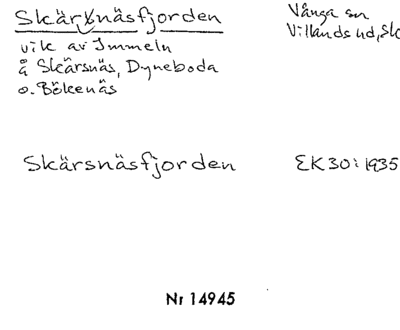 Skärsnäsfjorden
Vånga sn
Villands hd, Sk
vik av Immeln
å Skärsnäs, Dyneboda
o. Bökenäs
Skärsnäsfjorden
EK 30: 1935
Nr 14945